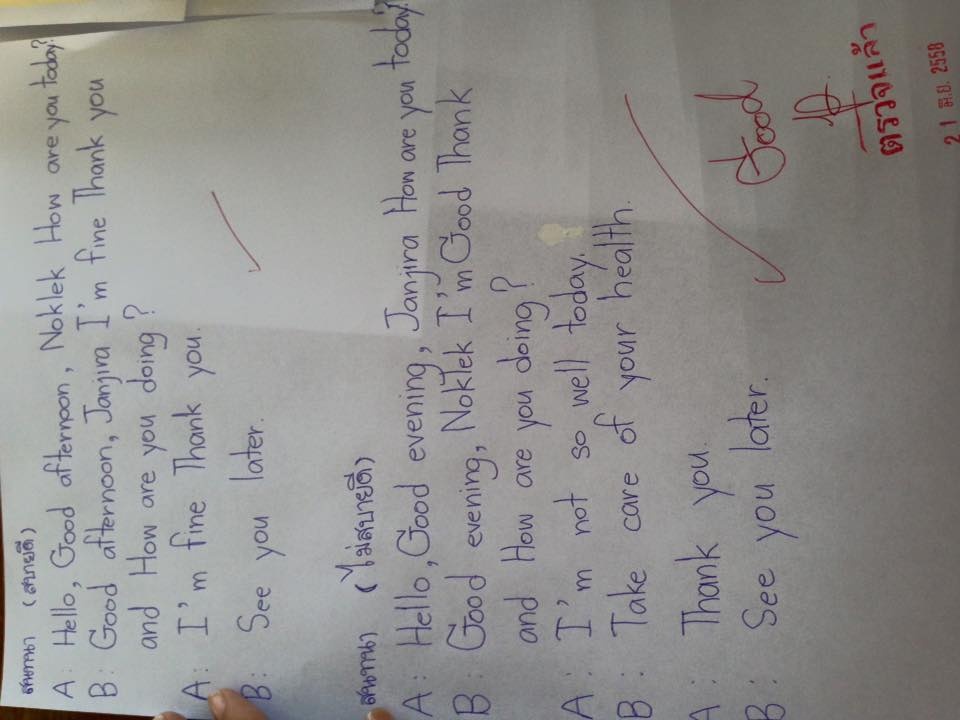 สนทนา (สบายดี)
A : Hello, Good afternoon, Noklek How are you today?
B : Good afternoon, Janjira I'm fine Thank you
and How are you doing?
A : I'm fine Thank you.
B : See you later.
สนทนา (ไม่สบายดี)
A : Hello, Good evening, Janjira How are you today?
B : Good evening, Noklek I'm Good Thank
and How are you doing?
A : I'm not so well today.
B : Take care of your health.
A : Thank you.
B : See you later.
Good
ตรวจแล้ว
21 มิ.ย. 2558